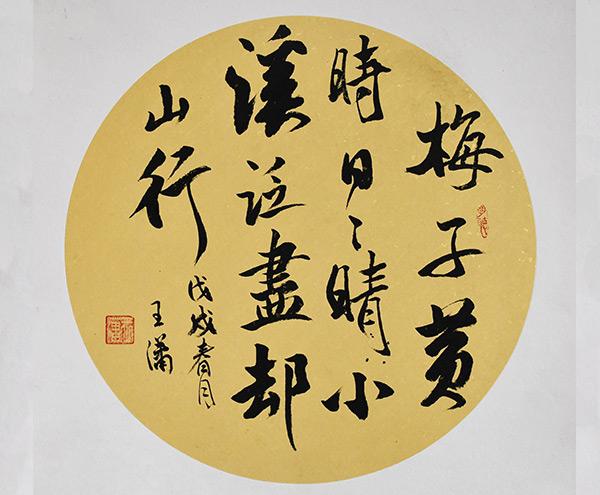 梅子黄
時日々晴小
溪泛盡却
山行
戊戌春月
王瀟